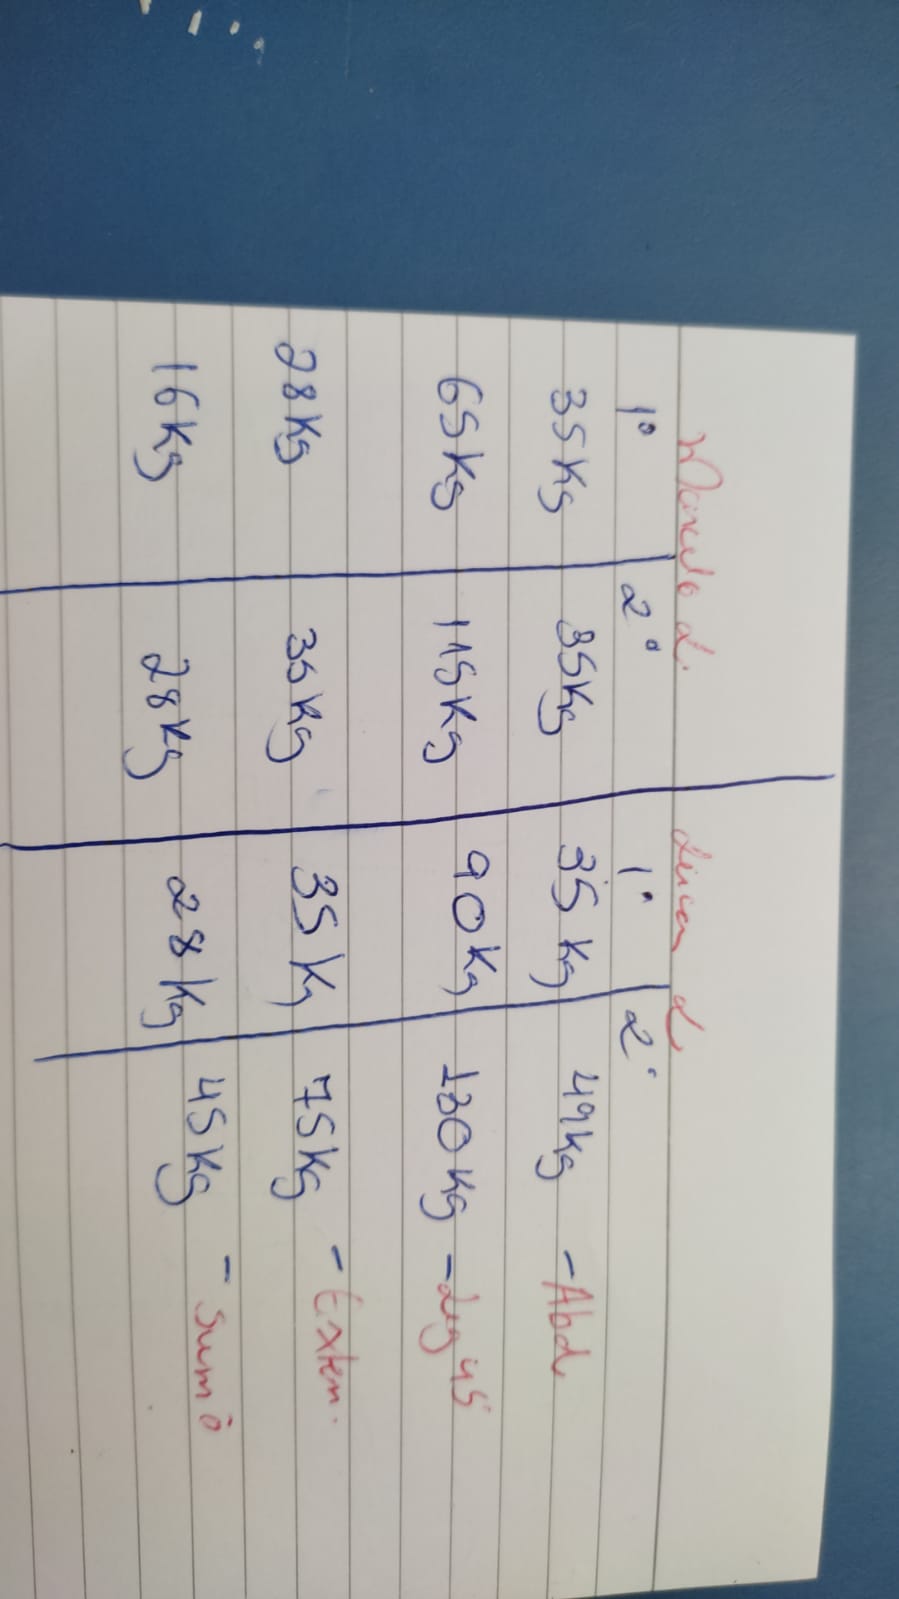 Marcelo L. Lucca L
1º 2º 1º 2º
35Kg 35Kg 35Kg 49Kg - Abd
65Kg 115Kg 90Kg 130Kg - Leg 45º
28Kg 35Kg 35Kg 75Kg - Exten.
16Kg 28Kg 28Kg 45Kg - Sumô